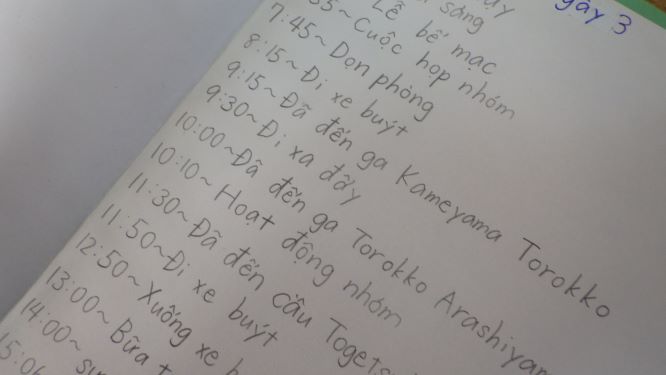 gày 3
sáng
Lễ bế mạc
35~Cuộc họp nhóm
7:45~Dọn phòng
8:15~Đi xe buýt
9:15~Đã đến ga Kameyama Torokko
9:30~Đi xa đẩy
10:00~Đã đến ga Torokko Arashiyam
10:10~Hoạt động nhóm
11:30~Đã đến cầu Togets
11:50~Đi xe buýt
12:50~Xuống xe b
13:00~Bữa t
14:00~
15:06